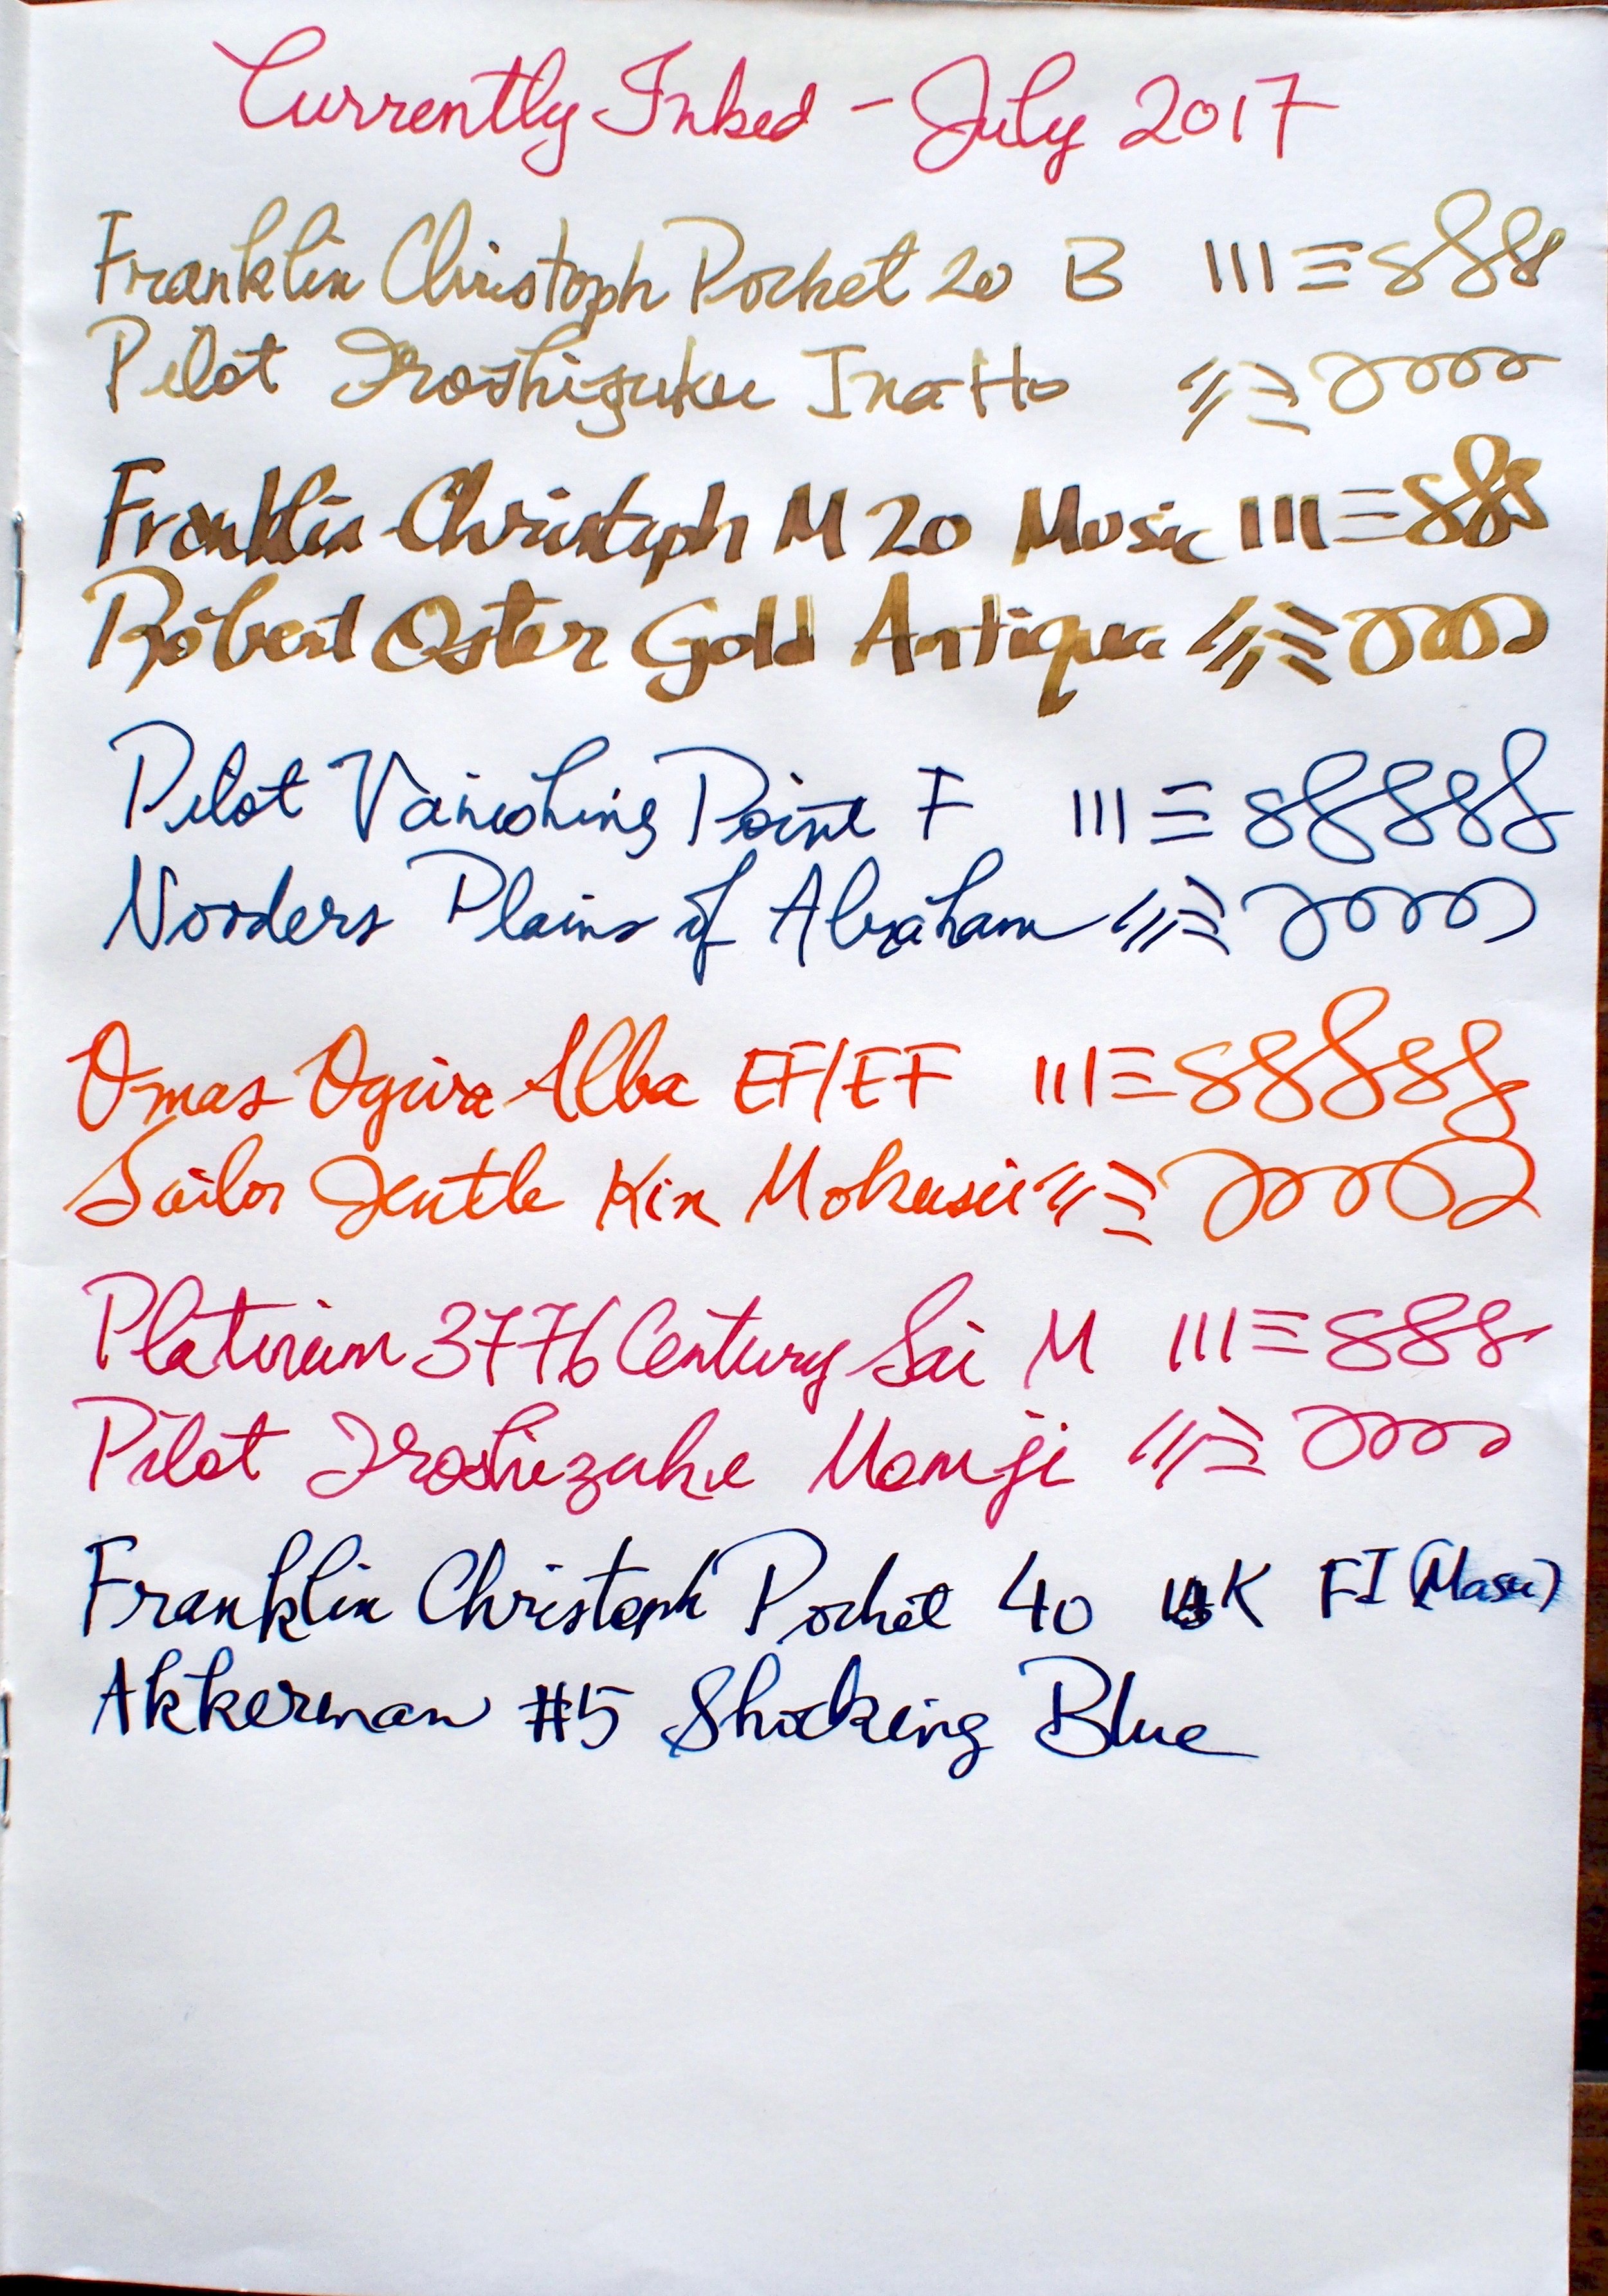 Currently Inked - July 2017
Franklin Christoph Pocket 20 B
Pilot Iroshizuku Ina Ho
Franklin-Christoph M 20 Music
Robert Oster Gold Antiqua
Pilot Vanishing Point F
Nooders Plains of Abraham
Omas Ogiva Alba EF/EF
Sailor Jentle Kin Mokusei
Platinum 3776 Century Sai M
Pilot Iroshizuku Momiji
Franklin Christoph Pocket 40 14K FI (Masu)
Akkerman #5 Shocking Blue